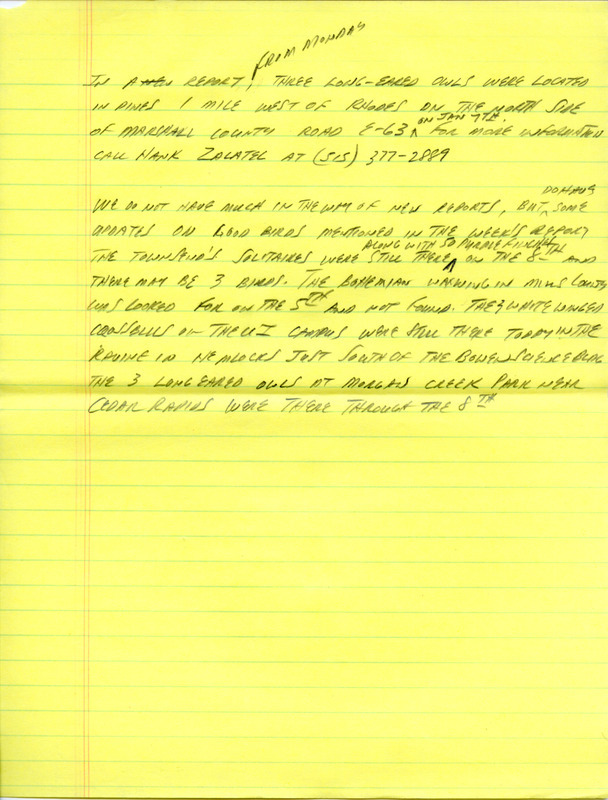 FROM MONDAY
IN A NEW REPORT, THREE LONG-EARED OWLS WERE LOCATED
IN PINES 1 MILE WEST OF RHODES ON THE NORTH SIDE
ON JAN 7TH.
OF MARSHALL COUNTY ROAD E-63 FOR MORE INFORMATION
CALL HANK ZALATEL AT (515) 377-2889
DO HAVE
WE DO NOT HAVE MUCH IN THE WAY OF NEW REPORTS, BUT SOME
UPDATES ON GOOD BIRDS MENTIONED IN THE WEEK'S REPORT
ALONG WITH 50 PURPLE FINCH
THE TOWNSEND'S SOLITAIRES WERE STILL THERE ON THE 8TH AND
THERE MAY BE 3 BIRDS. THE BOHEMIAN WAXWING IN MILLS COUNTY
WAS LOOKED FOR ON THE 5TH AND NOT FOUND. THE WHITE WINGED
CROSSBILLS ON THE U I CAMPUS WERE STILL THERE TODAY IN THE
RAVINE IN HEMLOCKS JUST SOUTH OF THE BOWEN SCIENCE BLDG
THE 3 LONG EARED OWLS AT MORGAN CREEK PARK NEAR
CEDAR RAPIDS WERE THERE THROUGH THE 8TH